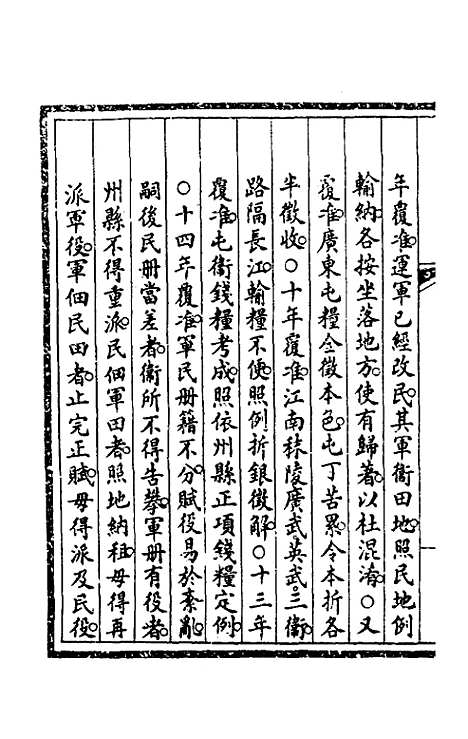 年覆准運軍已經改民其軍衛田地照民地例
輸納各按坐落地方使有歸著以杜混淆○又
覆准廣東屯糧全徵本色屯丁苦累今本折各
半徵收○十年覆准江南秣陵廣武英武三衛
路隔長江輸糧不便照例折銀徵解○十三年
覆准屯衛錢糧考成照依州縣正項錢糧定例
○十四年覆准軍民册籍不分賦役易於紊亂
嗣後民册當差者衛所不得告攀軍册有役者
州縣不得重派民佃軍田者照地納租毋得再
派軍役軍佃民田者止完正賦毋得派及民役